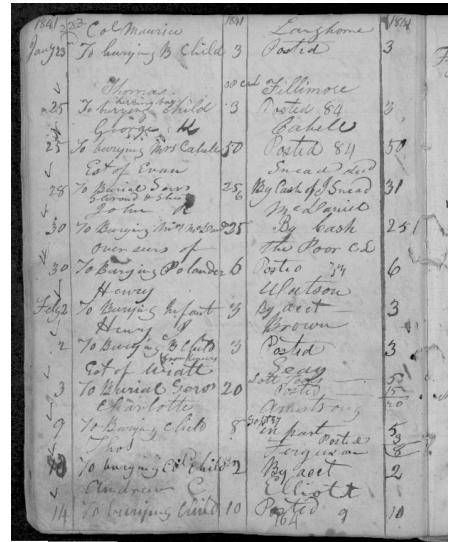 1841 Col Maurice 1841 Langhorne 1841
Jany 23 To burying B Child 3 Posted 3
Thomas Fillimore
25 To burying Child 3 Posted 84 3
George Cabell
25 To burying Mrs Cabell 50 Posted 84 50
Est of Evan Snead decd
28 To Burial Serv 25 By Cash of J Snead 31
Shroud & 6
John R McDaniel
30 To Burying 25 By Cash 25
Overseers of The Poor
30 To Burying Polander 6 Posted 6
Henry Watson
Feby 2 To Burying Infant 3 By acct 3
Henry Brown
2 To Burying B Child 3 Posted 3
Est of Wiatt
3 To Burial Serv 20 Posted 20
Charlotte Armstrong
9 To Burying Child 8 in part 5
Posted 3
Thos Ferguson 8
10 To burying Child 2 By acct 2
Andrew C Elliott
14 To burying Child 10 Posted 10
164 9